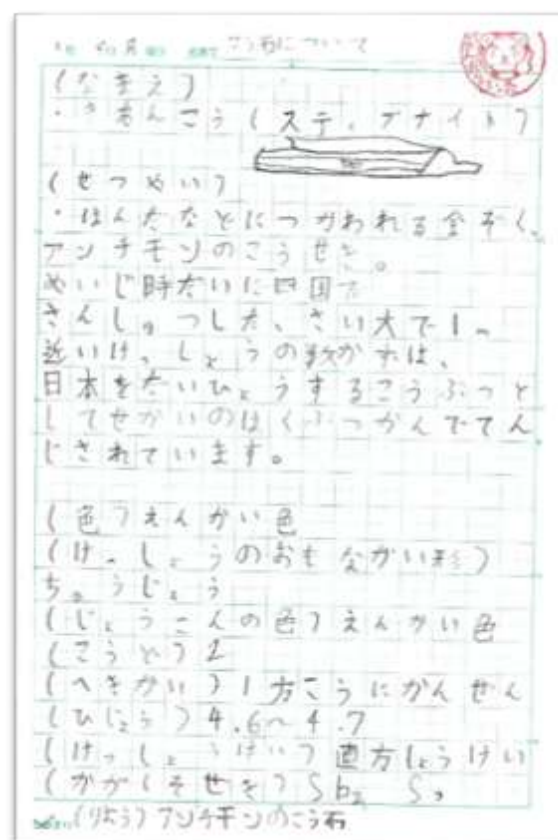 こう石について
(なまえ)
・きあんこう(スティブナイト)
(せつめい)
・はんだなどにつかわれる金ぞく、
アンチモンのこうせき。
めいじ時だいに四国で
さんしゅつした、さい大で1m
近いけっしょうの数かずは、
日本をだいひょうするこうぶつと
してせかいのはくぶつかんでてん
じされています。
(色)えんかい色
(けっしょうのおもながい形)
ちゅうじょう
(じょうこんの色)えんかい色
(こうど)2
(へきかい)1方こうにかんぜん
(ひじゅう)4.6〜4.7
(けっしょうけい)直方しょうけい
(かがくそせき)Sb₂ S₃
(りよう)アンチモンのこう石